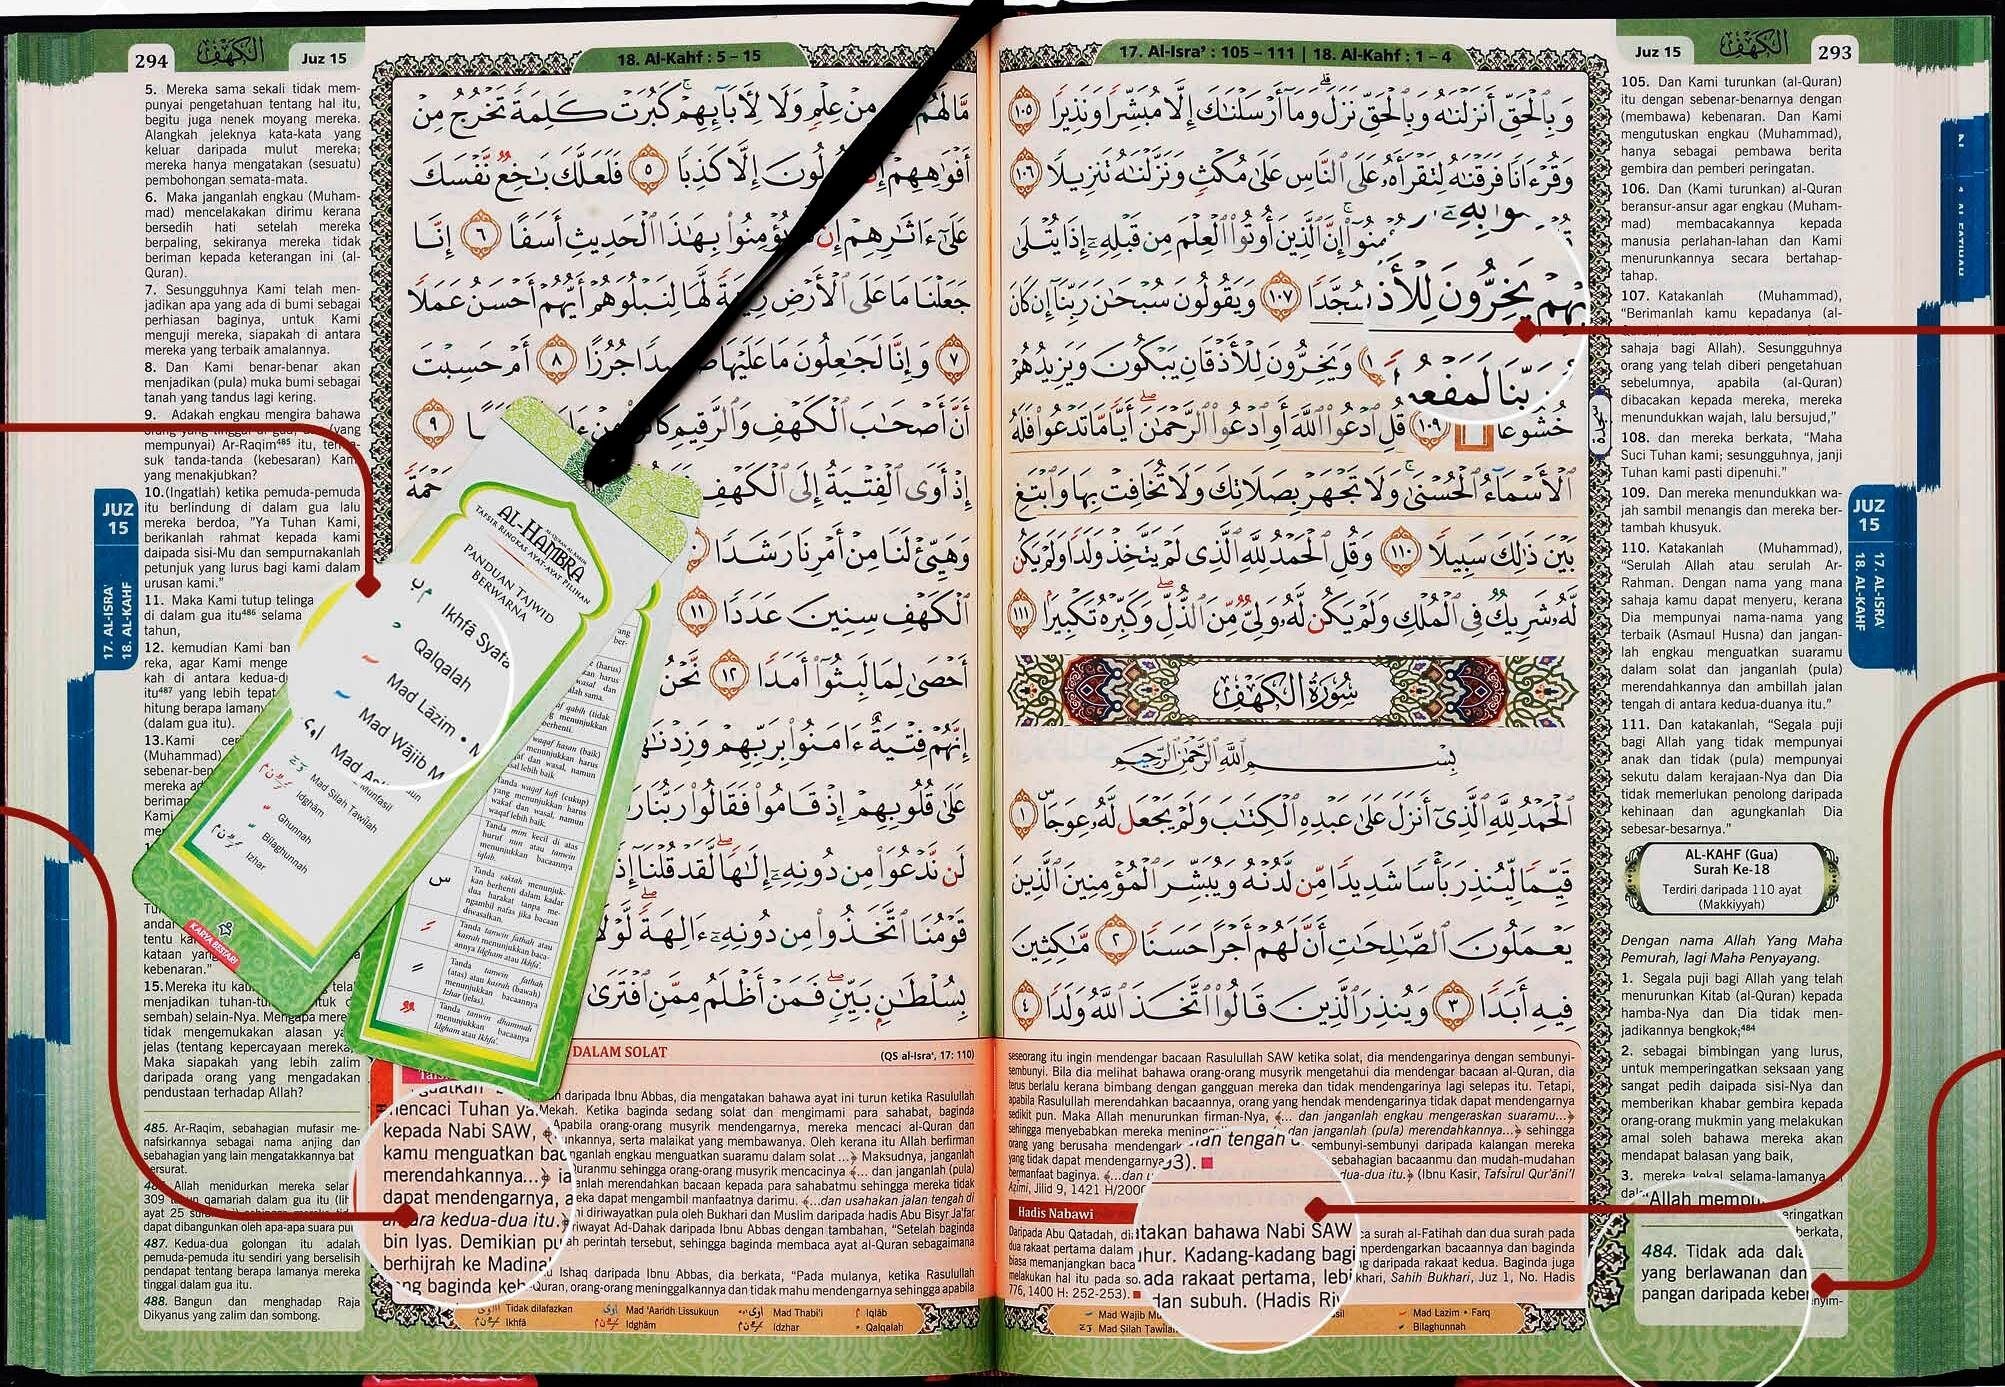 293
الكهف
Juz 15
17. Al-Isra' : 105 – 111 | 18. Al-Kahf : 1 – 4
وَبِالْحَقِّ أَنزَلْنَاهُ وَبِالْحَقِّ نَزَلَ وَمَا أَرْسَلْنَاكَ إِلَّا مُبَشِّرًا وَنَذِيرًا ١٠٥
وَقُرْءَانًا فَرَقْنَاهُ لِتَقْرَأَهُ عَلَى النَّاسِ عَلَى مُكْثٍ وَنَزَّلْنَاهُ تَنزِيلًا ١٠٦
إِنَّ الَّذِينَ أُوتُوا الْعِلْمَ مِن قَبْلِهِ إِذَا يُتْلَى
يَخِرُّونَ لِلْأَذ سُجَّدًا ١٠٧ وَيَقُولُونَ سُبْحَانَ رَبِّنَا إِن كَانَ
رَبِّنَا لَمَفْعُ وَيَخِرُّونَ لِلْأَذْقَانِ يَبْكُونَ وَيَزِيدُهُمْ
خُشُوعًا ١٠٩ قُلِ ادْعُوا اللَّهَ أَوِ ادْعُوا الرَّحْمَٰنَ أَيًّا مَّا تَدْعُوا فَلَهُ
الْأَسْمَاءُ الْحُسْنَى وَلَا تَجْهَرْ بِصَلَاتِكَ وَلَا تُخَافِتْ بِهَا وَابْتَغِ
بَيْنَ ذَٰلِكَ سَبِيلًا ١١٠ وَقُلِ الْحَمْدُ لِلَّهِ الَّذِي لَمْ يَتَّخِذْ وَلَدًا وَلَمْ يَكُن
لَّهُ شَرِيكٌ فِي الْمُلْكِ وَلَمْ يَكُن لَّهُ وَلِيٌّ مِّنَ الذُّلِّ وَكَبِّرْهُ تَكْبِيرًا ١١١
سُورَةُ الْكَهْفِ
بِسْمِ اللَّهِ الرَّحْمَٰنِ الرَّحِيمِ
الْحَمْدُ لِلَّهِ الَّذِي أَنزَلَ عَلَى عَبْدِهِ الْكِتَابَ وَلَمْ يَجْعَل لَّهُ عِوَجًا ١
قَيِّمًا لِّيُنذِرَ بَأْسًا شَدِيدًا مِّن لَّدُنْهُ وَيُبَشِّرَ الْمُؤْمِنِينَ الَّذِينَ
يَعْمَلُونَ الصَّالِحَاتِ أَنَّ لَهُمْ أَجْرًا حَسَنًا ٢ مَّاكِثِينَ
فِيهِ أَبَدًا ٣ وَيُنذِرَ الَّذِينَ قَالُوا اتَّخَذَ اللَّهُ وَلَدًا ٤
105. Dan Kami turunkan (al-Quran)
itu dengan sebenar-benarnya dengan
(membawa) kebenaran. Dan Kami
mengutuskan engkau (Muhammad),
hanya sebagai pembawa berita
gembira dan pemberi peringatan.
106. Dan (Kami turunkan) al-Quran
beransur-ansur agar engkau (Muham-
mad) membacakannya kepada
manusia perlahan-lahan dan Kami
menurunkannya secara bertahap-
tahap.
107. Katakanlah (Muhammad),
"Berimanlah kamu kepadanya (al-
sahaja bagi Allah). Sesungguhnya
orang yang telah diberi pengetahuan
sebelumnya, apabila (al-Quran)
dibacakan kepada mereka, mereka
menundukkan wajah, lalu bersujud,"
108. dan mereka berkata, "Maha
Suci Tuhan kami; sesungguhnya, janji
Tuhan kami pasti dipenuhi."
109. Dan mereka menundukkan wa-
jah sambil menangis dan mereka ber-
tambah khusyuk.
110. Katakanlah (Muhammad),
"Serulah Allah atau serulah Ar-
Rahman. Dengan nama yang mana
sahaja kamu dapat menyeru, kerana
Dia mempunyai nama-nama yang
terbaik (Asmaul Husna) dan jangan-
lah engkau menguatkan suaramu
dalam solat dan janganlah (pula)
merendahkannya dan ambillah jalan
tengah di antara kedua-duanya itu."
111. Dan katakanlah, "Segala puji
bagi Allah yang tidak mempunyai
anak dan tidak (pula) mempunyai
sekutu dalam kerajaan-Nya dan Dia
tidak memerlukan penolong daripada
kehinaan dan agungkanlah Dia
sebesar-besarnya."
AL-KAHF (Gua)
Surah Ke-18
Terdiri daripada 110 ayat
(Makkiyyah)
Dengan nama Allah Yang Maha
Pemurah, lagi Maha Penyayang.
1. Segala puji bagi Allah yang telah
menurunkan Kitab (al-Quran) kepada
hamba-Nya dan Dia tidak men-
jadikannya bengkok;484
2. sebagai bimbingan yang lurus,
untuk memperingatkan seksaan yang
sangat pedih daipada sisi-Nya dan
memberikan khabar gembira kepada
orang-orang mukmin yang melakukan
amal soleh bahawa mereka akan
mendapat balasan yang baik,
3. mereka kekal selama-lamanya
Allah mempu
484. Tidak ada dala
yang berlawanan dan
pangan daripada keber
JUZ
15
17. AL-ISRA'
18. AL-KAHF
294
الكهف
Juz 15
18. Al-Kahf : 5 – 15
مَّا لَهُم مِنْ عِلْمٍ وَلَا لِآبَائِهِمْ كَبُرَتْ كَلِمَةً تَخْرُجُ مِنْ
أَفْوَاهِهِمْ إِلَّا كَذِبًا ٥ فَلَعَلَّكَ بَاخِعٌ نَّفْسَكَ
عَلَى ءَاثَارِهِمْ إِن يُؤْمِنُوا بِهَٰذَا الْحَدِيثِ أَسَفًا ٦ إِنَّا
جَعَلْنَا مَا عَلَى الْأَرْضِ لَّهَا لِنَبْلُوَهُمْ أَيُّهُمْ أَحْسَنُ عَمَلًا
٧ وَإِنَّا لَجَاعِلُونَ مَا عَلَيْهَا جُرُزًا ٨ أَمْ حَسِبْتَ
أَنَّ أَصْحَابَ الْكَهْفِ وَالرَّقِيمِ ٩
إِذْ أَوَى الْفِتْيَةُ إِلَى الْكَهْفِ
وَهَيِّئْ لَنَا مِنْ أَمْرِنَا رَشَدًا
الْكَهْفِ سِنِينَ عَدَدًا ١١
أَحْصَى لِمَا لَبِثُوا أَمَدًا ١٢ نَّحْنُ
إِنَّهُمْ فِتْيَةٌ ءَامَنُوا بِرَبِّهِمْ
عَلَى قُلُوبِهِمْ إِذْ قَامُوا فَقَالُوا رَبُّنَا
لَن نَّدْعُوَا مِن دُونِهِ إِلَٰهًا لَّقَدْ قُلْنَا إِذًا
قَوْمُنَا اتَّخَذُوا مِن دُونِهِ ءَالِهَةً لَّوْلَا
بِسُلْطَانٍ بَيِّنٍ فَمَنْ أَظْلَمُ مِمَّنِ افْتَرَى
5. Mereka sama sekali tidak mem-
punyai pengetahuan tentang hal itu,
begitu juga nenek moyang mereka.
Alangkah jeleknya kata-kata yang
keluar daripada mulut mereka;
mereka hanya mengatakan (sesuatu)
pembohongan semata-mata.
6. Maka janganlah engkau (Muham-
mad) mencelakakan dirimu kerana
bersedih hati setelah mereka
berpaling, sekiranya mereka tidak
beriman kepada keterangan ini (al-
Quran).
7. Sesungguhnya Kami telah men-
jadikan apa yang ada di bumi sebagai
perhiasan baginya, untuk Kami
menguji mereka, siapakah di antara
mereka yang terbaik amalannya.
8. Dan Kami benar-benar akan
menjadikan (pula) muka bumi sebagai
tanah yang tandus lagi kering.
9. Adakah engkau mengira bahawa
mempunyai) Ar-Raqim485 itu, terma-
suk tanda-tanda (kebesaran) Kami
yang menakjubkan?
10.(Ingatlah) ketika pemuda-pemuda
itu berlindung di dalam gua lalu
mereka berdoa, "Ya Tuhan Kami,
berikanlah rahmat kepada kami
daipada sisi-Mu dan sempurnakanlah
petunjuk yang lurus bagi kami dalam
urusan kami."
11. Maka Kami tutup telinga
di dalam gua itu486 selama
tahun,
12. kemudian Kami ban
reka, agar Kami menge
kah di antara kedua-d
itu487 yang lebih tepat
hitung berapa laman
(dalam gua itu).
13.Kami
(Muhammad)
kebenaran."
menjadikan tuhan-tu
sembah) selain-Nya. Mengapa mere
tidak mengemukakan alasan
jelas (tentang kepercayaan mereka
Maka siapakah yang lebih zalim
daripada orang yang mengadakan
pendustaan terhadap Allah?
485. Ar-Raqim, sebahagian mufasir me-
nafsirkannya sebagai nama anjing dan
sebahagian yang lain mengatakannya bat
Allah menidurkan mereka selama
309 tahun qamariah dalam gua itu
dapat dibangunkan oleh apa-apa suara pun
487. Kedua-dua golongan itu adalah
pemuda-pemuda itu sendiri yang berselisih
pendapat tentang berapa lamanya mereka
tinggal dalam gua itu.
488. Bangun dan menghadap Raja
Dikyanus yang zalim dan sombong.
JUZ
15
17. AL-ISRA'
18. AL-KAHF
AL-HAMBRA
TAFSIR RINGKAS AYAT-AYAT PILIHAN
PANDUAN TAJWID
BERWARNA
Ikhfā Syafa
Qalqalah
Mad Lāzim •
Mad Wājib M
Mad Silah Tawilah
Idghām
Ghunnah
Bilaghunnah
Izhar
KARYA BESTARI
Tanda waqaf kafi (cukup)
yang menunjukkan harus
wakaf dan wasal, namun
waqaf lebih baik.
Tanda mim kecil di atas
huruf nun atau tanwin
menunjukkan bacaannya
iqlab.
Tanda saktah menunjuk-
kan berhenti dalam kadar
dua harakat tanpa me-
ngambil nafas jika bacaan
diwasalkan.
Tanda tanwin fathah atau
kasrah menunjukkan baca-
annya Idgham atau Ikhfa'.
Tanda tanwin fathah
(atas) atau kasrah (bawah)
menunjukkan bacaannya
Izhar (jelas).
Tanda tanwin dhammah
menunjukkan bacaannya
Idgham atau Ikhfa'.
DALAM SOLAT
(QS al-Isra', 17: 110)
daripada Ibnu Abbas, dia mengatakan bahawa ayat ini turun ketika Rasulullah
Mekah. Ketika baginda sedang solat dan mengimami para sahabat, baginda
Apabila orang-orang musyrik mendengarnya, mereka mencaci al-Quran dan
serta malaikat yang membawanya. Oleh kerana itu Allah berfirman
engkau menguatkan suaramu dalam solat ...﴿ Maksudnya, janganlah
sehingga orang-orang musyrik mencacinya ﴾... dan janganlah (pula)
merendahkan bacaan kepada para sahabatmu sehingga mereka tidak
dapat mengambil manfaatnya darimu. ﴾...dan usahakan jalan tengah di
diriwayatkan pula oleh Bukhari dan Muslim daripada hadis Abu Bisyr Ja'far
riwayat Ad-Dahak daripada Ibnu Abbas dengan tambahan, "Setelah baginda
perintah tersebut, sehingga baginda membaca ayat al-Quran sebagaimana
Ishaq daripada Ibnu Abbas, dia berkata, "Pada mulanya, ketika Rasulullah
Quran, orang-orang meninggalkannya dan tidak mahu mendengarnya sehingga apabila
mencaci Tuhan ya
kepada Nabi SAW,
kamu menguatkan bac
merendahkannya...﴿ ia
dapat mendengarnya, a
kedua-dua itu.﴿
bin Iyas. Demikian pu
berhijrah ke Madina
baginda keh
seseorang itu ingin mendengar bacaan Rasulullah SAW ketika solat, dia mendengarinya dengan sembunyi-
sembunyi. Bila dia melihat bahawa orang-orang musyrik mengetahui dia mendengar bacaan al-Quran, dia
terus berlalu kerana bimbang dengan gangguan mereka dan tidak mendengarinya lagi selepas itu. Tetapi,
apabila Rasulullah merendahkan bacaannya, orang yang hendak mendengarinya tidak dapat mendengarnya
sedikit pun. Maka Allah menurunkan firman-Nya, ﴾... dan janganlah engkau mengeraskan suaramu...﴿
sehingga menyebabkan mereka dan janganlah (pula) merendahkannya...﴿ sehingga
orang yang berusaha mendengar sembunyi-sembunyi daripada kalangan mereka
yang tidak dapat mendengarnya sebahagian bacaanmu dan mudah-mudahan
bermanfaat baginya. (Ibnu Kasir, Tafsirul Qur'āni'l
Azimi, Jilid 9, 1421 H/2000
Hadis Nabawi
Daripada Abu Qatadah, surah al-Fatihah dan dua surah pada
dua rakaat pertama dalam memperdengarkan bacaannya dan baginda
biasa memanjangkan baca daripada rakaat kedua. Baginda juga
melakukan hal itu pada so Sahih Bukhari, Juz 1, No. Hadis
776, 1400 H: 252-253).
takan bahawa Nabi SAW
hur. Kadang-kadang bagi
ada rakaat pertama, lebi
dan subuh. (Hadis Riw
Tidak dilafazkan
Mad 'Aaridh Lissukuun
Mad Thabi'i
Iqlāb
Ikhfā
Idghām
Idzhar
Qalqalah
Mad Wajib
Mad Lazim • Farq
Mad Silah Tawilah
Bilaghunnah